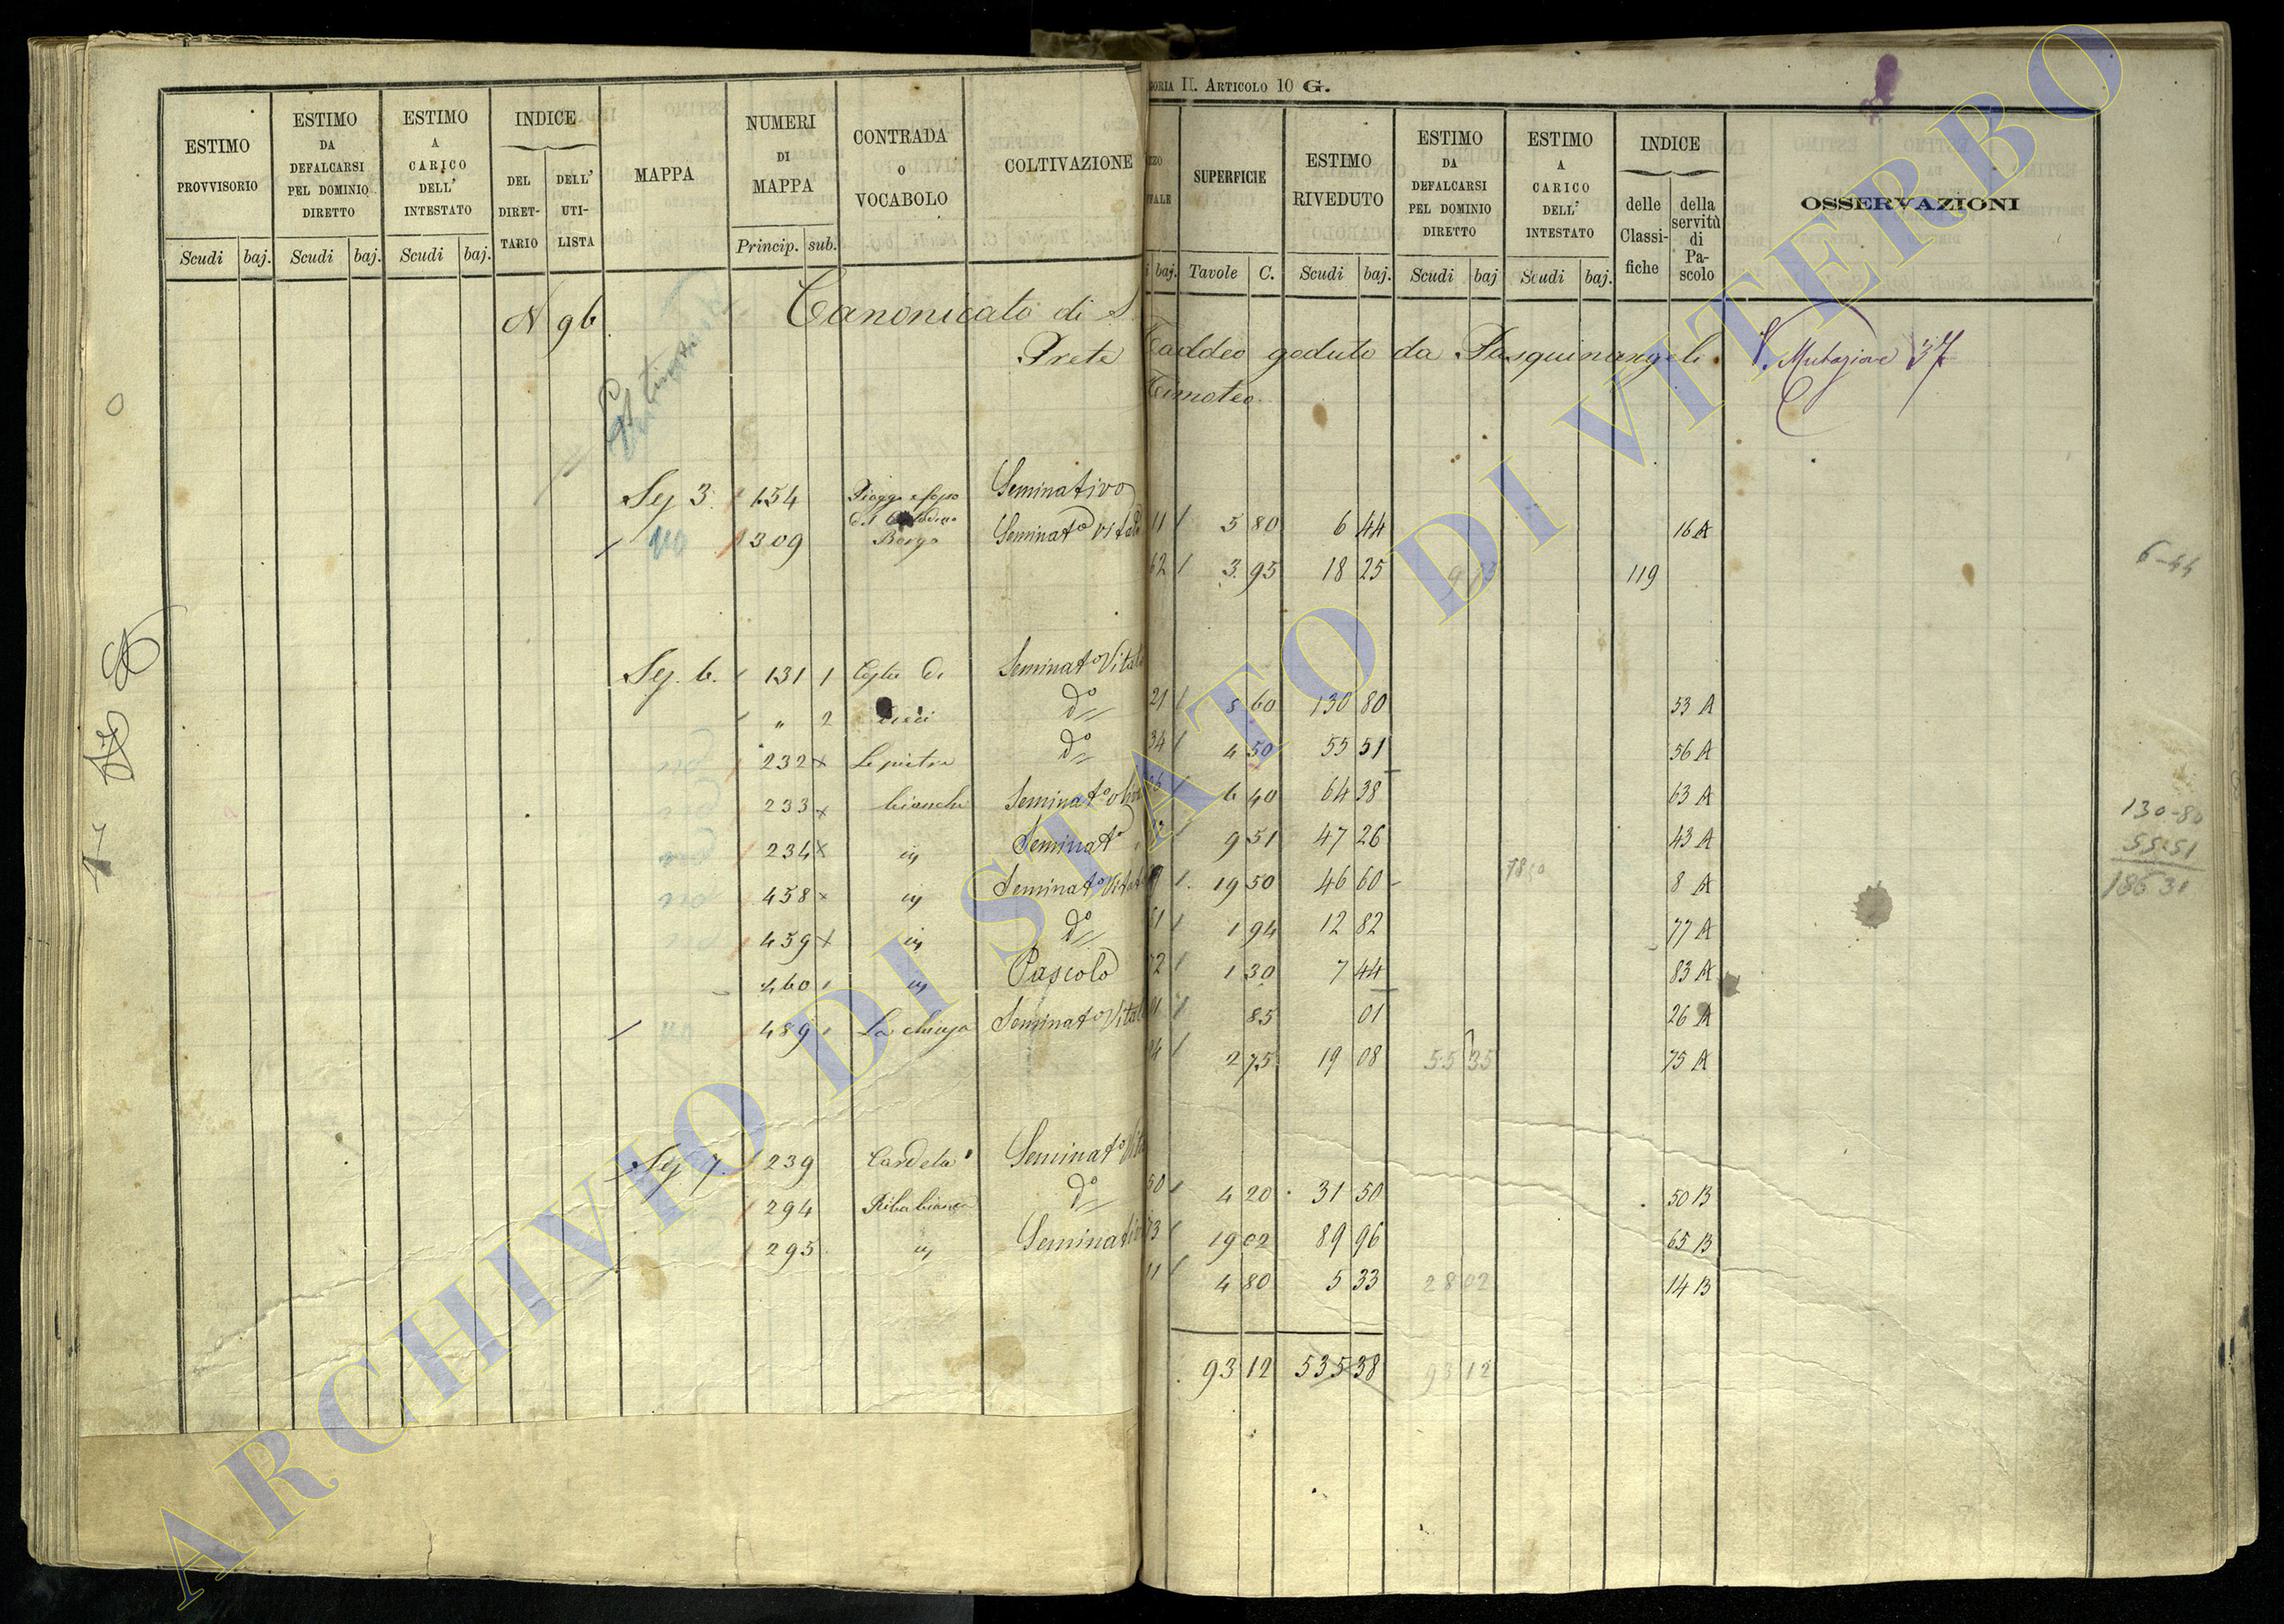 GORIA II. ARTICOLO 10 G.
ESTIMO PROVVISORIO Scudi baj.
ESTIMO DA DEFALCARSI PEL DOMINIO DIRETTO Scudi baj.
ESTIMO A CARICO DELL' INTESTATO Scudi baj.
INDICE DEL DIRET- TARIO DELL' UTI- LISTA
MAPPA
NUMERI DI MAPPA Princip. sub.
CONTRADA O VOCABOLO
COLTIVAZIONE
baj.
SUPERFICIE Tavole C.
ESTIMO RIVEDUTO Scudi baj.
ESTIMO DA DEFALCARSI PEL DOMINIO DIRETTO Scudi baj
ESTIMO A CARICO DELL' INTESTATO Scudi baj.
INDICE delle Classi- fiche della servitù di Pa- scolo
OSSERVAZIONI
N 96 Canonicato di S.
Taddeo goduto da Pasquinangeli V. Mutazione 37
Prete Timoteo
Sez 3. 154 Seminativo 11 5 80 6 44 16 A
309 Borgo Seminat° vitato 62 3 95 18 25 119
6-44
Sez. 6. 131 1 Coste di Seminat° Vitato 21 8 60 130 80 53 A
" 2 d° 34 4 50 55 51 56 A
232 Le pietre d° 6 40 64 38 63 A
233 bianche Seminat° 9 51 47 26 43 A
234 Seminat° 19 50 46 60 8 A
458 Seminat° Vitato 1 94 12 82 77 A
459 d° 72 1 30 7 44 83 A
460 Pascolo 01 85 01 26 A
489 Seminat° Vitato 2 75 19 08 55 35 75 A
130-80
55-51
186 31
Sez 7. 239 Cardeta Seminat° 50 4 20 31 50 50 B
294 Ripa bianca d° 73 19 02 89 96 65 B
295 Seminativo 11 4 80 5 33 28 02 14 B
93 12 535 38 93 12
ARCHIVIO DI STATO DI VITERBO